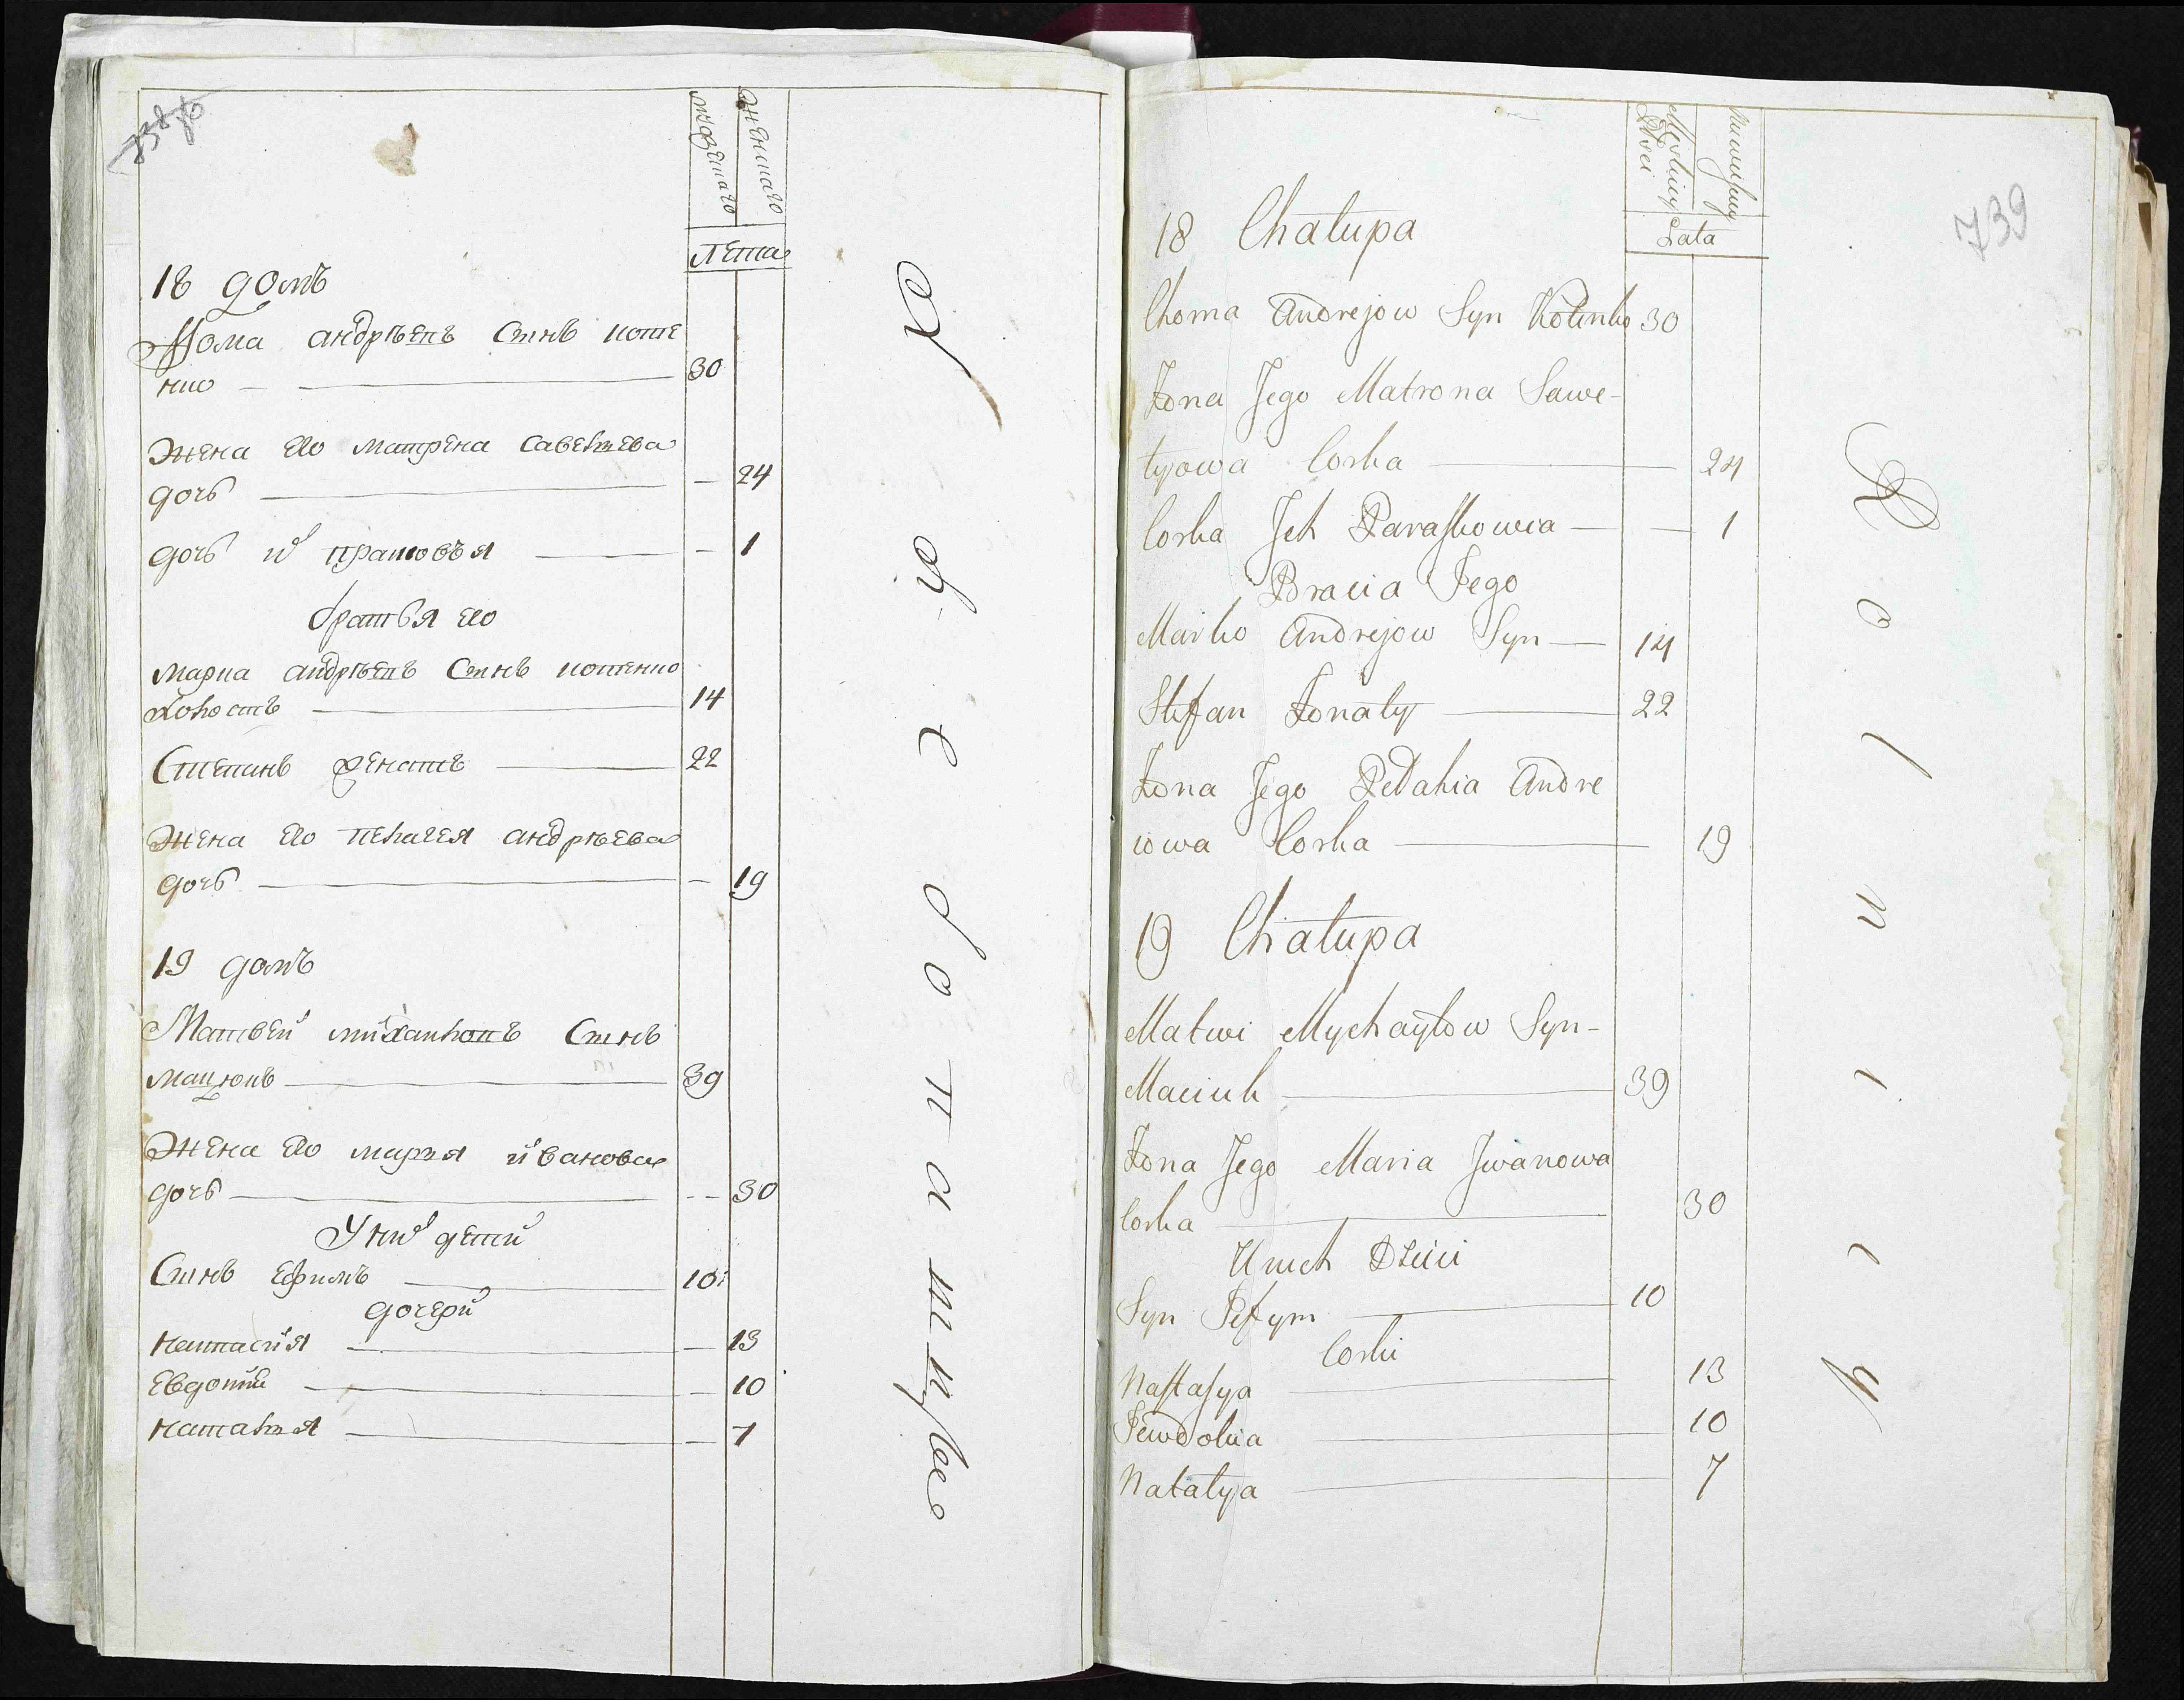 мужескаго
женскаго
Лета
18 домъ
Хома андрѣевъ Сынъ коте
нко 30
Жена Его матрена Савельева
дочь — 24
дочь их прасковья — 1
братья Его
марка андрѣевъ Сынъ котенко
холостъ 14
Степанъ женатъ 22
Жена Его пелагея андрѣева
дочь — 19
19 домъ
Матвей михайловъ Сынъ
мацюкъ 39
Жена Его марья ивановa
дочь -- 30
У них детей
Сынъ Ефимъ 10
дочерей
настасия — 13
Евдокия — 10
наталья — 7
739
Męskiey
Płci
Niewieskiey
Lata
18 Chałupa
Choma Andrejow Syn Kotenko 30
Żona Jego Matrona Sawe-
tyowa Corka — 24
Corka Jch Paraskowia — — 1
Bracia Jego
Marko Andrejow Syn — 14
Stefan Żonaty 22
Żona Jego Pełahia Andre
iowa Corka 19
19 Chałupa
Matwi Mychayłow Syn-
Maciuk 39
Żona Jego Maria Jwanowa
Corka 30
Unich Dzieci
Syn Jefym 10
Corki
Nastasya 13
Jewdokia 10
Natalya 7